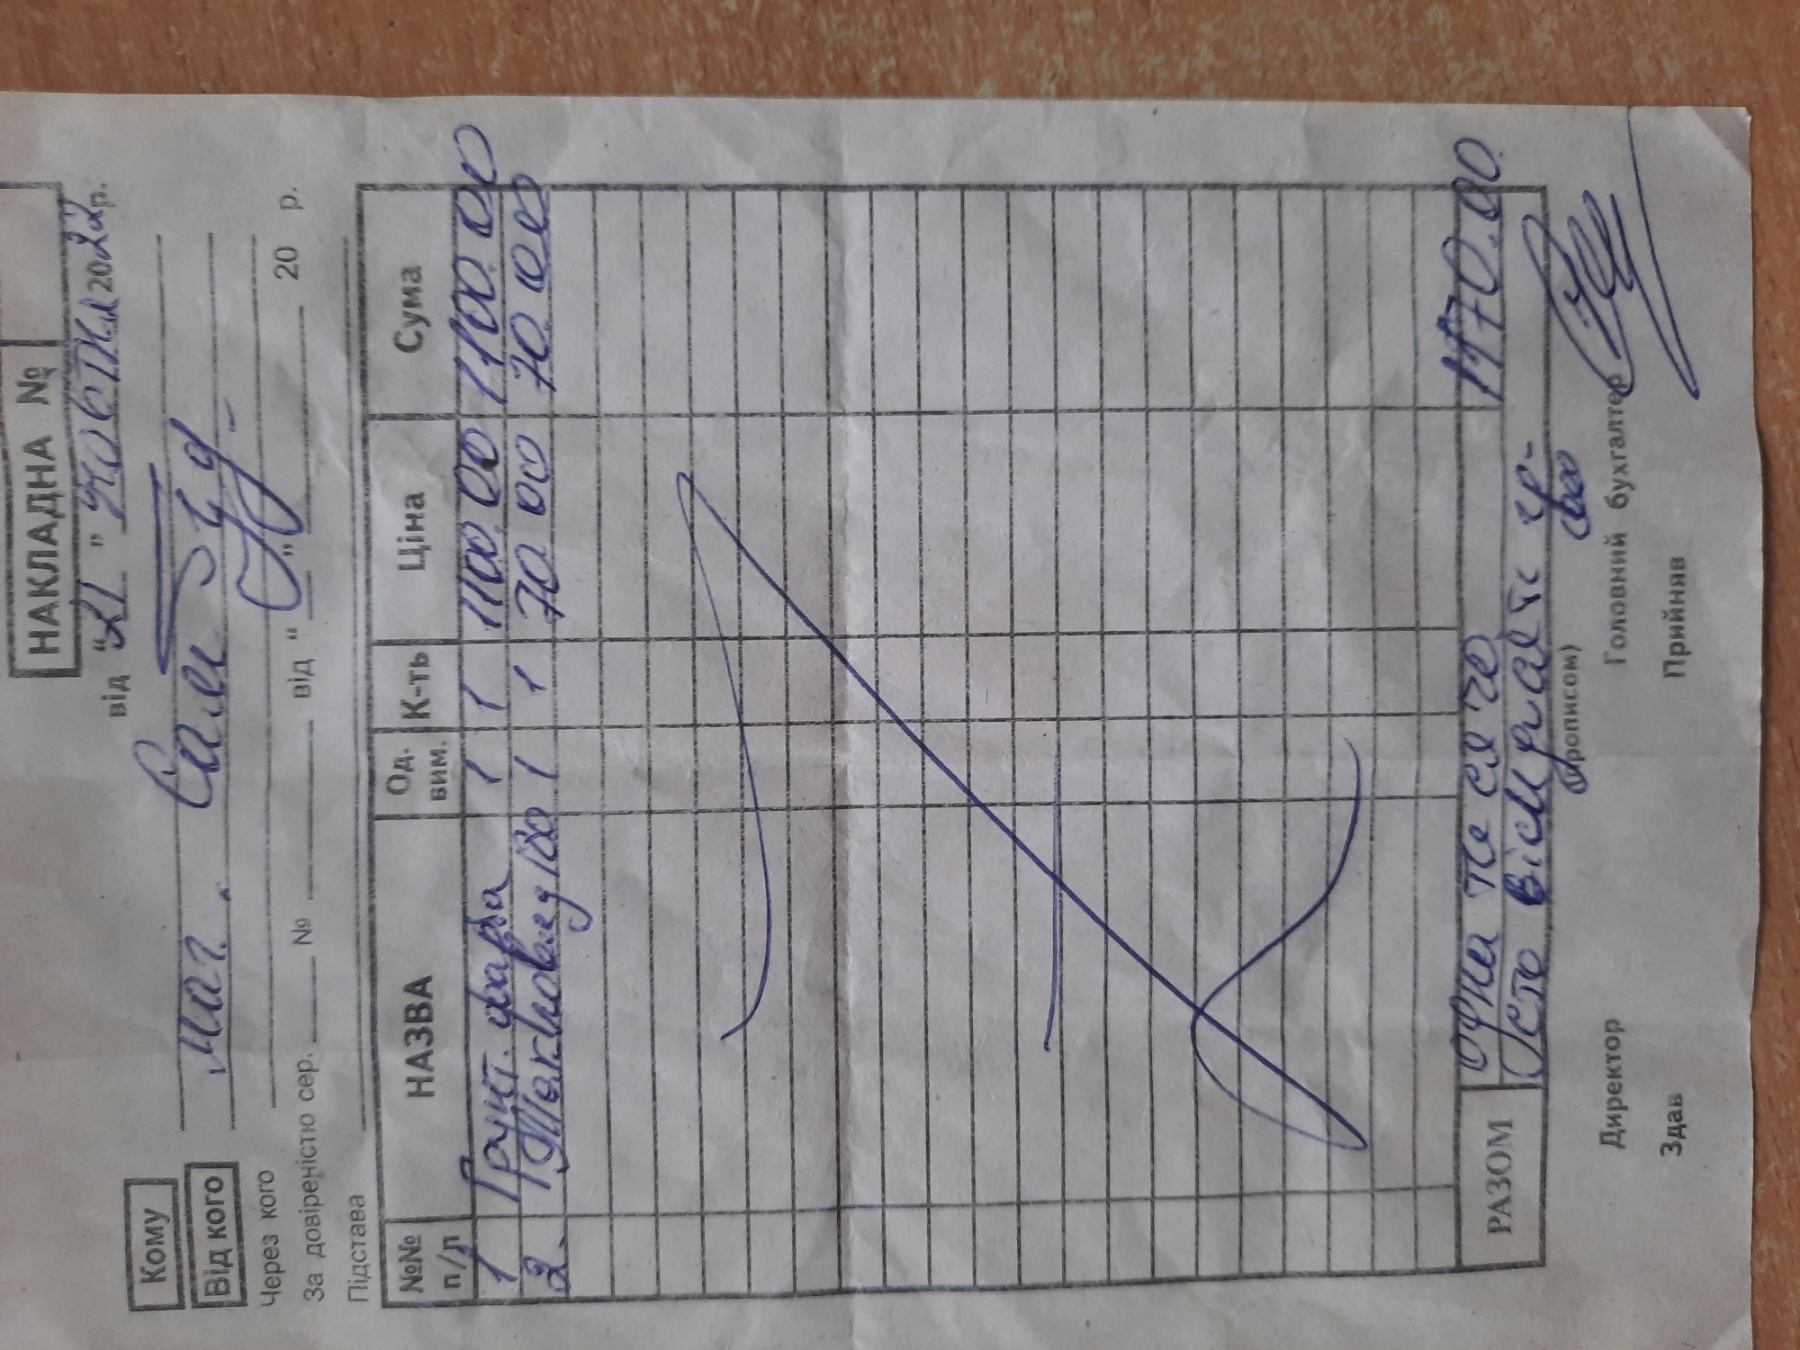 НАКЛАДНА №
від " 21 " жовтня 20 22 р.
Кому маг. Сам Буд
Від кого
Через кого
За довіреністю сер. № від " " 20 р.
Підстава
№№ п/п НАЗВА Од. вим. К-ть Ціна Сума
1 Грунт. фарба 1 1 1100.00 1100.00
2. 180 1 1 70 00 70 00
РАЗОМ Одна тисяча 1170.00
Сто вісімдесят гр-
(прописом)
Директор Головний бухгалтер
Здав Прийняв